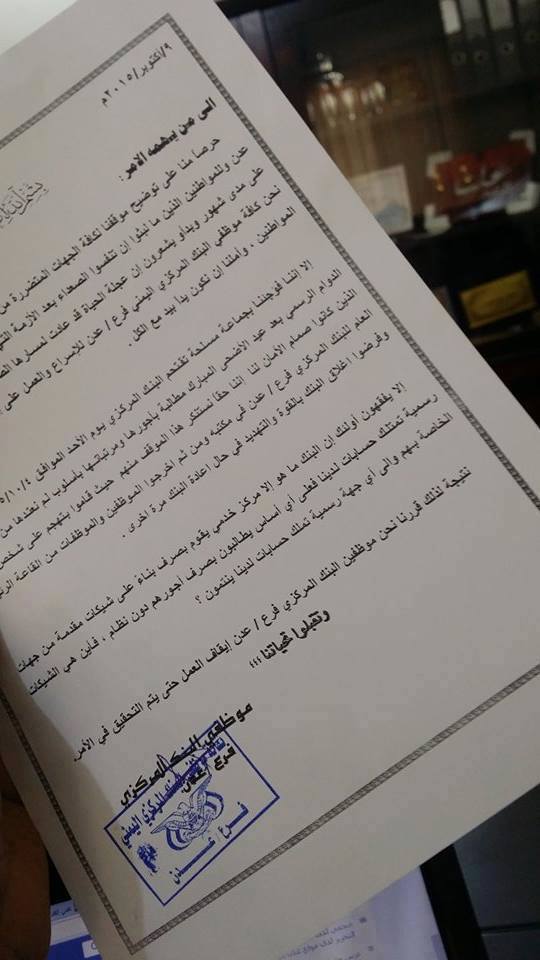 ٩/أكتوبر/٢٠١٥م
الى من يهمه الأمر :
حرصاً منا على توضيح موقفنا لكافة الجهات المتضررة من
عدن وللمواطنين الذين ما لبثوا ان تنفسوا الصعداء بعد الأزمة التي
على مدى شهور وبدأو يشعرون ان عجلة الحياة قد عادت لمسارها
نحن كافة موظفي البنك المركزي اليمني فرع / عدن للإسراع والعمل على
المواطنين ، وأملنا ان نكون يداً بيد مع الكل .
إلا اننا فوجئنا بجماعة مسلحة تقتحم البنك المركزي يوم الأحد الموافق
الدوام الرسمي بعد عيد الأضحى المبارك مطالبة بأجورها ومرتباتها بأسلوب لم نعهدها من
الذين كانوا صمام الأمان لنا إننا حقاً نستنكر هذا الموقف منهم حيث قاموا بتهجم على شخص
العام للبنك المركزي فرع / عدن في مكتبه ومن ثم اخرجوا الموظفين والموظفات من القاعة
وفرضوا اغلاق البنك بالقوة والتهديد في حال إعادة البنك مرة اخرى .
إلا يفقهون أولئك إن البنك ما هو إلا مركز خدمي يقوم بصرف بناءً على شيكات مقدمة من جهات
رسمية تمتلك حسابات لدينا فعلى أي أساس يطالبون بصرف أجورهم دون نظام . فأين هي الشيكات
الخاصة بهم والى أي جهة رسمية تملك حسابات لدينا ينتمون ؟
نتيجة لذلك قررنا نحن موظفين البنك المركزي فرع / عدن إيقاف العمل حتى يتم التحقيق في الأمر.
وتقبلوا تحياتنا ؛؛؛
موظفي البنك المركزي
فرع عدن
البنك المركزي اليمني
فرع عدن